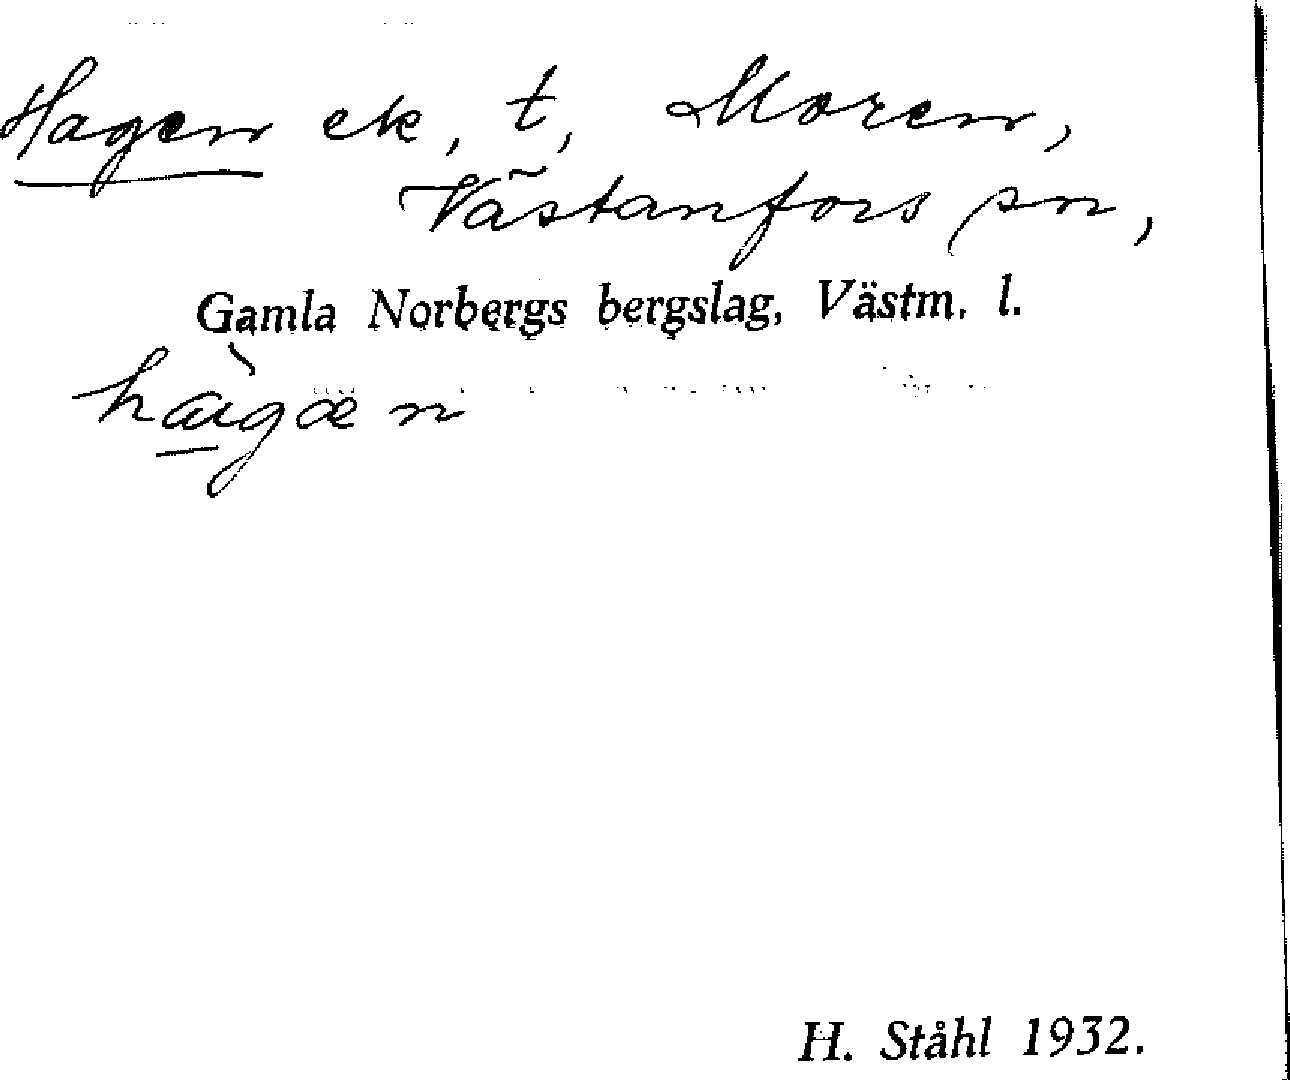 Hagen ek, t, Moren,
Västanfors sn,
Gamla Norbergs bergslag, Västm. l.
hàgæn
H. Ståhl 1932.